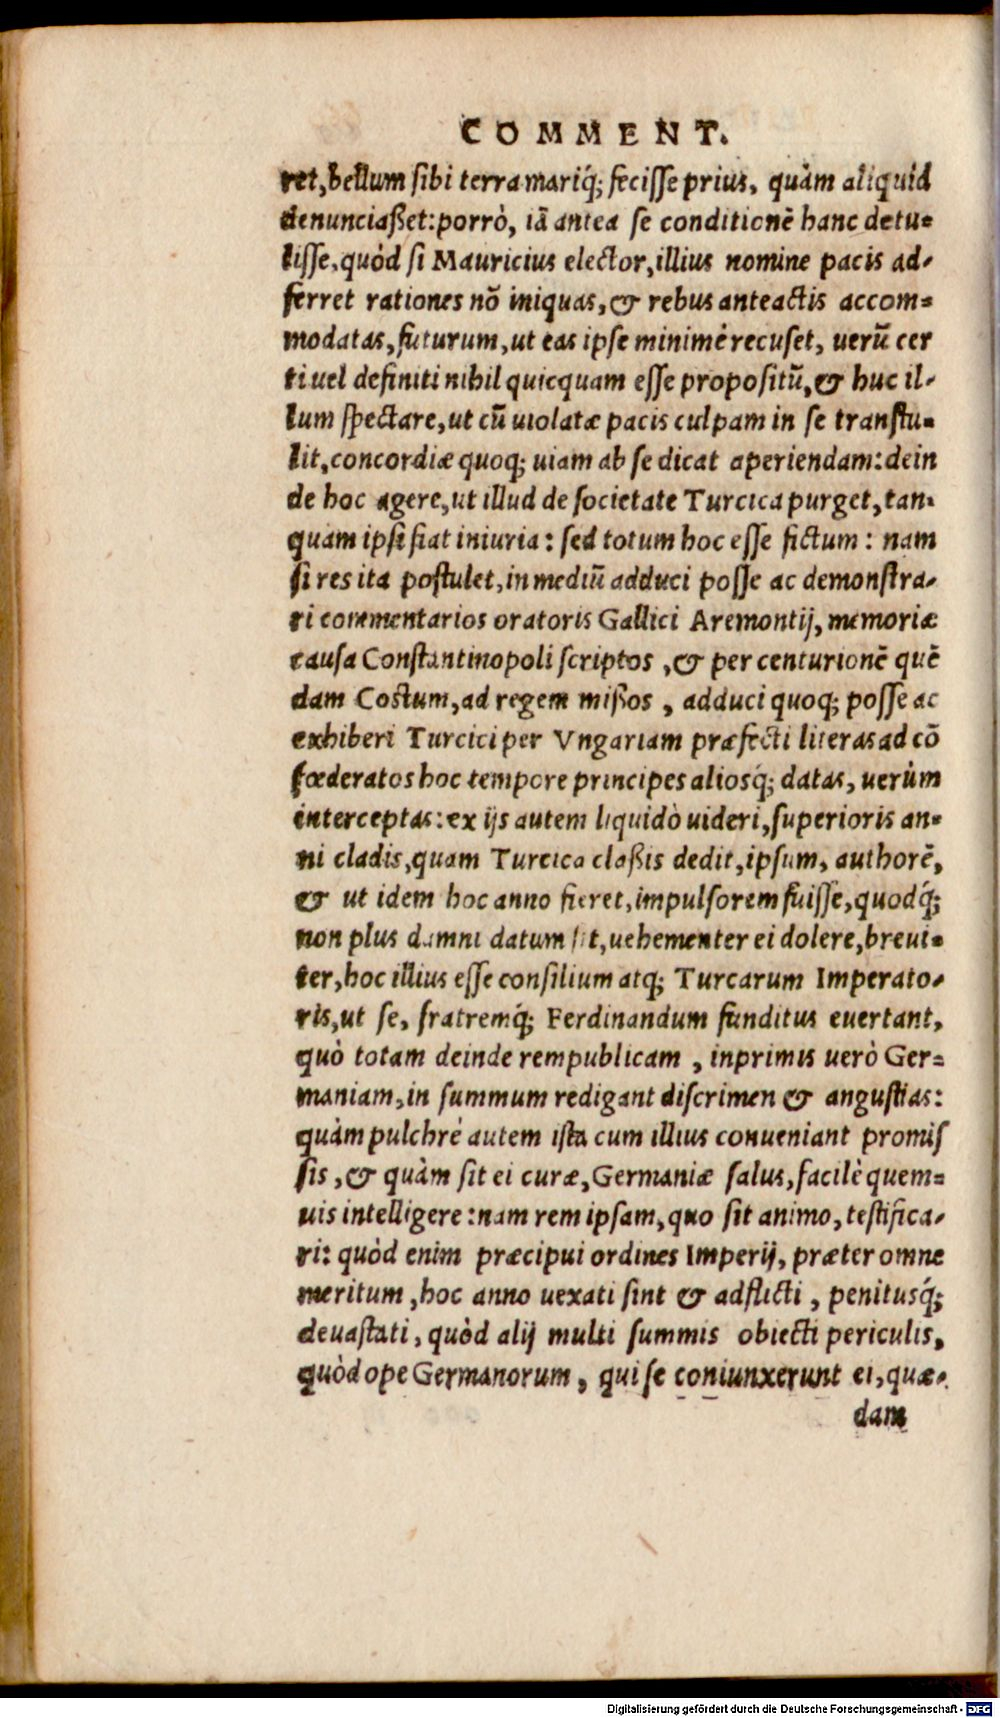 COMMENT.
ret, bellum sibi terra mariq́; fecisse prius, quàm aliquid
denunciaßet: porrò, iā antea se conditionē hanc detu-
lisse, quòd si Mauricius elector, illius nomine pacis ad-
ferret rationes nō iniquas, & rebus anteactis accom-
modatas, futurum, ut eas ipse minimè recuset, uerū cer
ti uel definiti nihil quicquam esse propositū, & huc il-
lum spectare, ut cū uiolatæ pacis culpam in se transtu-
lit, concordiæ quoq; uiam ab se dicat aperiendam: dein
de hoc agere, ut illud de societate Turcica purget, tan-
quam ipsi fiat iniuria: sed totum hoc esse fictum: nam
si res ita postulet, in mediū adduci posse ac demonstra-
ri commentarios oratoris Gallici Aremontij, memoriæ
causa Constantinopoli scriptos, & per centurionē quē
dam Costum, ad regem mißos, adduci quoq; posse ac
exhiberi Turcici per Vngariam præfecti literas ad cō
fœderatos hoc tempore principes aliosq́; datas, uerùm
interceptas: ex ijs autem liquidò uideri, superioris an-
ni cladis, quam Turcica claßis dedit, ipsum, authorē,
& ut idem hoc anno fieret, impulsorem fuisse, quodq́;
non plus damni datum sit, uehementer ei dolere, breui-
ter, hoc illius esse consilium atq; Turcarum Imperato-
ris, ut se, fratremq́; Ferdinandum funditus euertant,
quò totam deinde rempublicam, inprimis uerò Ger-
maniam, in summum redigant discrimen & angustias:
quàm pulchrè autem ista cum illius conueniant promis
sis, & quàm sit ei curæ, Germaniæ salus, facilè quem-
uis intelligere: nam rem ipsam, quo sit animo, testifica-
ri: quòd enim præcipui ordines Imperij, præter omne
meritum, hoc anno uexati sint & adflicti, penitusq́;
deuastati, quòd alij multi summis obiecti periculis,
quòd ope Germanorum, qui se coniunxerunt ei, quæ-
dam
Digitalisierung gefördert durch die Deutsche Forschungsgemeinschaft - DFG